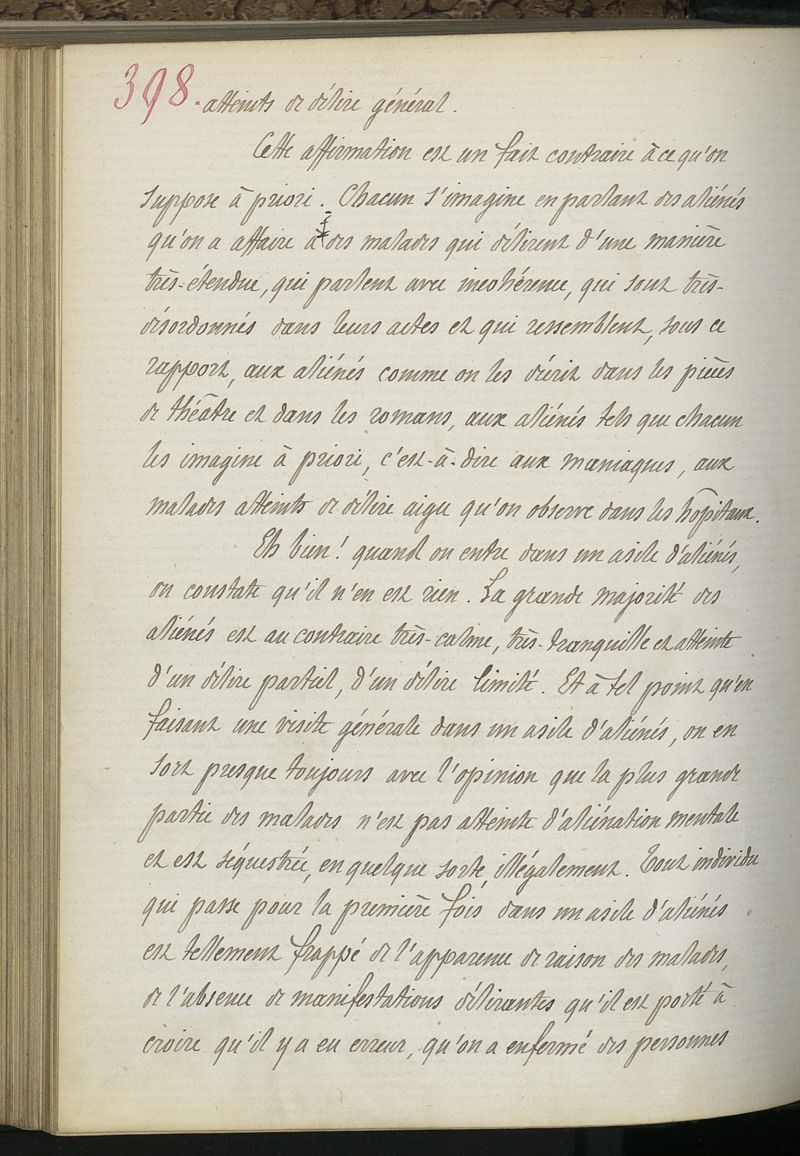 398.
atteints de délire général.
Cette affirmation est un fait contraire à ce qu'on
suppose à priori. Chacun s'imagine en parlant des aliénés
qu'on a affaire à des malades qui délirent d'une manière
très-étendue, qui parlent avec incohérence, qui sont très-
désordonnés dans leurs actes et qui ressemblent, sous ce
rapport, aux aliénés comme on les décrit dans les pièces
de théâtre et dans les romans, aux aliénés tels que chacun
les imagine à priori, c'est-à-dire aux maniaques, aux
malades atteints de délire aigu qu'on observe dans les hôpitaux.
Eh bien! quand on entre dans un asile d'aliénés,
on constate qu'il n'en est rien. La grande majorité des
aliénés est au contraire très-calme, très-tranquille et atteinte
d'un délire partiel, d'un délire limité. Et à tel point qu'en
faisant une visite générale dans un asile d'aliénés, on en
sort presque toujours avec l'opinion que la plus grande
partie des malades n'est pas atteinte d'aliénation mentale
et est séquestrée, en quelque sorte, illégalement. Tout individu
qui passe pour la première fois dans un asile d'aliénés
est tellement frappé de l'apparence de raison des malades,
de l'absence de manifestations délirantes qu'il est porté à
croire qu'il y a eu erreur, qu'on a enfermé des personnes